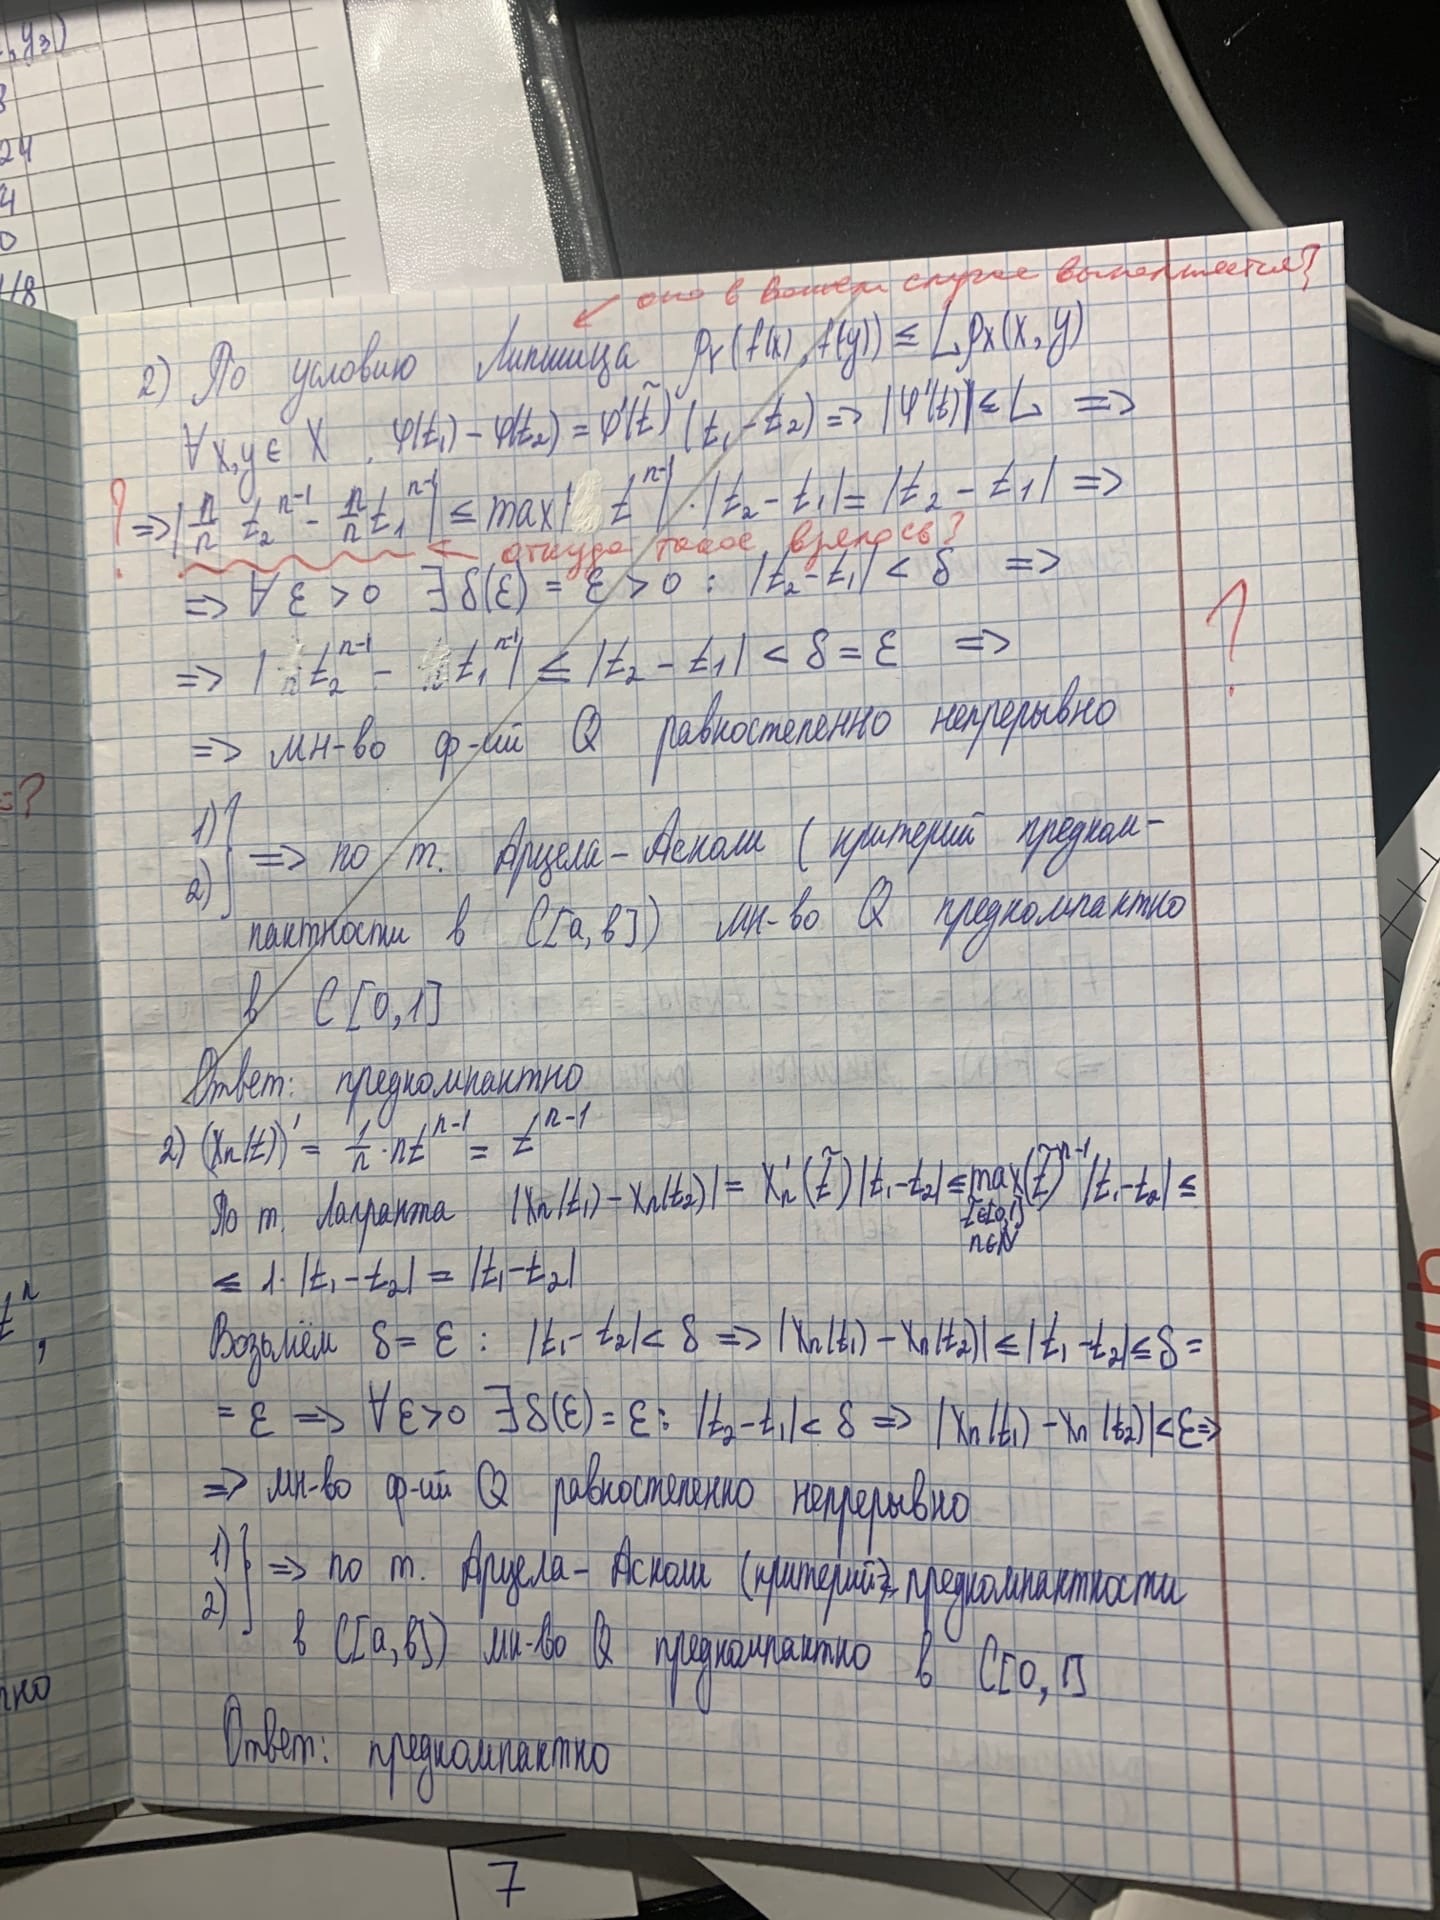 , y₃)
8
24
4
0
1/8
оно в вашем случае выполняется?
2) По условию Липшица ρ_Y(f(x), f(y)) ≤ Lρ_X(x, y)
∀x,y ∈ X. φ(t₁) - φ(t₂) = φ'(t̃)(t₁ - t₂) => |φ'(t)| ≤ L =>
? => |n/n t₂ⁿ⁻¹ - n/n t₁ⁿ⁻¹| ≤ max| tⁿ⁻¹| · |t₂ - t₁| = |t₂ - t₁| =>
откуда такое взялось?
=> ∀ε > 0 ∃δ(ε) = ε > 0 : |t₂ - t₁| < δ =>
?
=> | t₂ⁿ⁻¹ - t₁ⁿ⁻¹| ≤ |t₂ - t₁| < δ = ε =>
=> мн-во ф-ий Q равностепенно непрерывно
?
1)
2)} => по т. Арцела-Асколи (критерий предком-
пактности в C[a,b]) мн-во Q предкомпактно
в C[0,1]
Ответ: предкомпактно
2) (xₙ(t))' = 1/n · ntⁿ⁻¹ = tⁿ⁻¹
По т. Лагранжа |xₙ(t₁) - xₙ(t₂)| = xₙ'(t̃)|t₁-t₂| ≤ max(t̃)ⁿ⁻¹|t₁-t₂| ≤
t̃∈[0,1]
n∈N
≤ 1·|t₁-t₂| = |t₁-t₂|
tⁿ,
Возьмём δ = ε : |t₁-t₂| < δ => |xₙ(t₁) - xₙ(t₂)| ≤ |t₁-t₂| ≤ δ =
= ε => ∀ε>0 ∃δ(ε) = ε: |t₂-t₁| < δ => |xₙ(t₁) - xₙ(t₂)| < ε =>
=> мн-во ф-ий Q равностепенно непрерывно
1)
2)} => по т. Арцела-Асколи (критерий предкомпактности
в C[a,b]) мн-во Q предкомпактно в C[0,1]
Ответ: предкомпактно
7